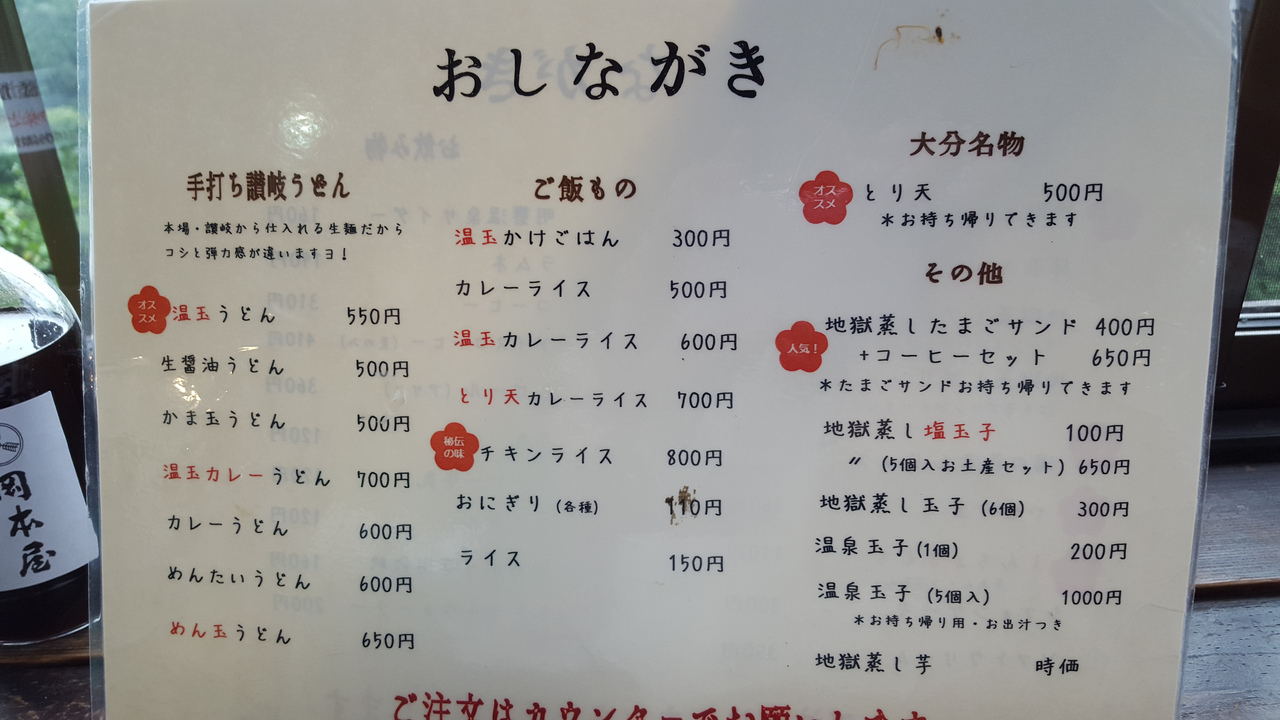 おしながき
手打ち讃岐うどん
本場・讃岐から仕入れる生麺だから
コシと弾力感が違いますヨ！
オススメ 温玉うどん 550円
生醤油うどん 500円
かま玉うどん 500円
温玉カレーうどん 700円
カレーうどん 600円
めんたいうどん 600円
めん玉うどん 650円
ご飯もの
温玉かけごはん 300円
カレーライス 500円
温玉カレーライス 600円
とり天カレーライス 700円
秘伝の味 チキンライス 800円
おにぎり (各種) 110円
ライス 150円
大分名物
オススメ とり天 500円
＊お持ち帰りできます
その他
人気！ 地獄蒸したまごサンド 400円
+コーヒーセット 650円
＊たまごサンドお持ち帰りできます
地獄蒸し塩玉子 100円
〃 (5個入お土産セット) 650円
地獄蒸し玉子 (6個) 300円
温泉玉子(1個) 200円
温泉玉子 (5個入) 1000円
＊お持ち帰り用・お出汁つき
地獄蒸し芋 時価
ご注文はカウンターでお願いします
岡本屋